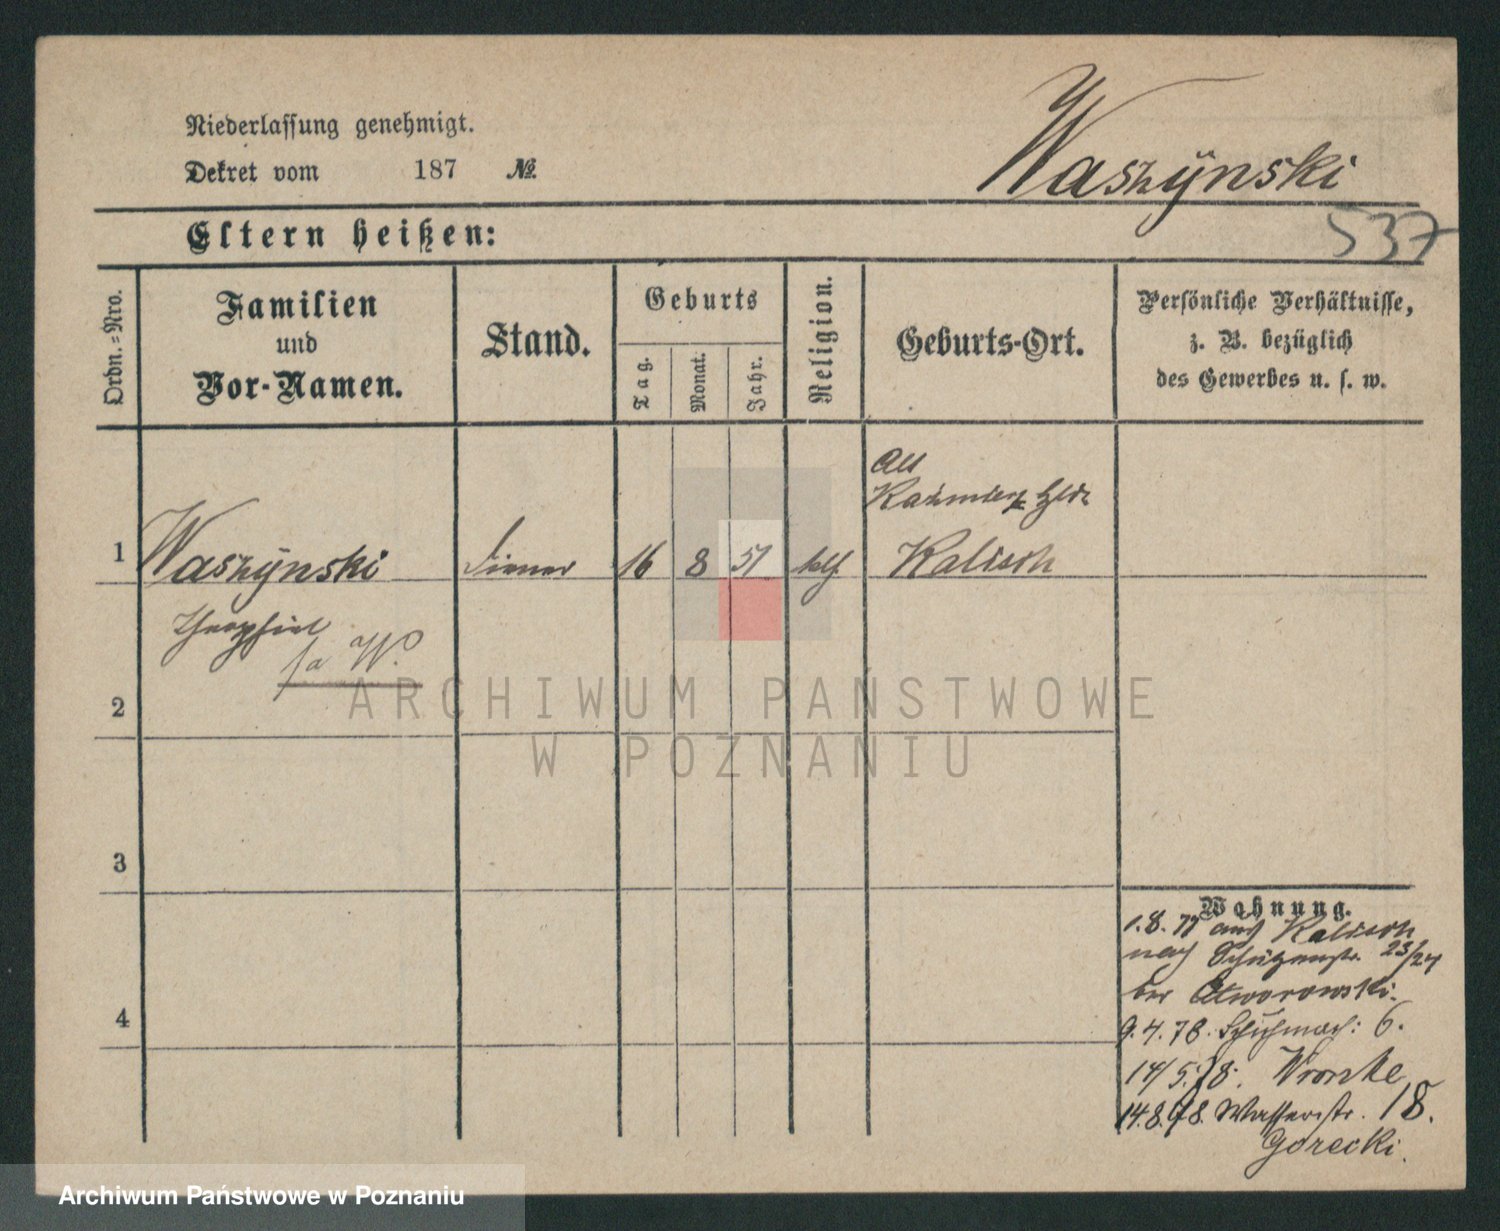 Niederlassung genehmigt.
Dekret vom 187 №
Waszÿnski
537
Eltern heißen:
Ordn.=Nro.
Familien
und
Vor-Namen.
Stand.
Geburts
Tag.
Monat.
Jahr.
Religion.
Geburts-Ort.
Persönliche Verhältnisse,
z. B. bezüglich
des Gewerbes u. s. w.
1
Waszÿnski
Diener
16
8
51
kth
Alt
Kalisch
Theophil
fa W.
2
ARCHIWUM PAŃSTWOWE
W POZNANIU
3
4
Wohnung.
1.8.77 aus Kalisch
nach Schützenstr. 23/24
bei Otworowski.
9.4.78. Schuhmach: 6.
14/5.78. Wronke
14.8.78. Wasserstr. 18.
Gorecki.
Archiwum Państwowe w Poznaniu